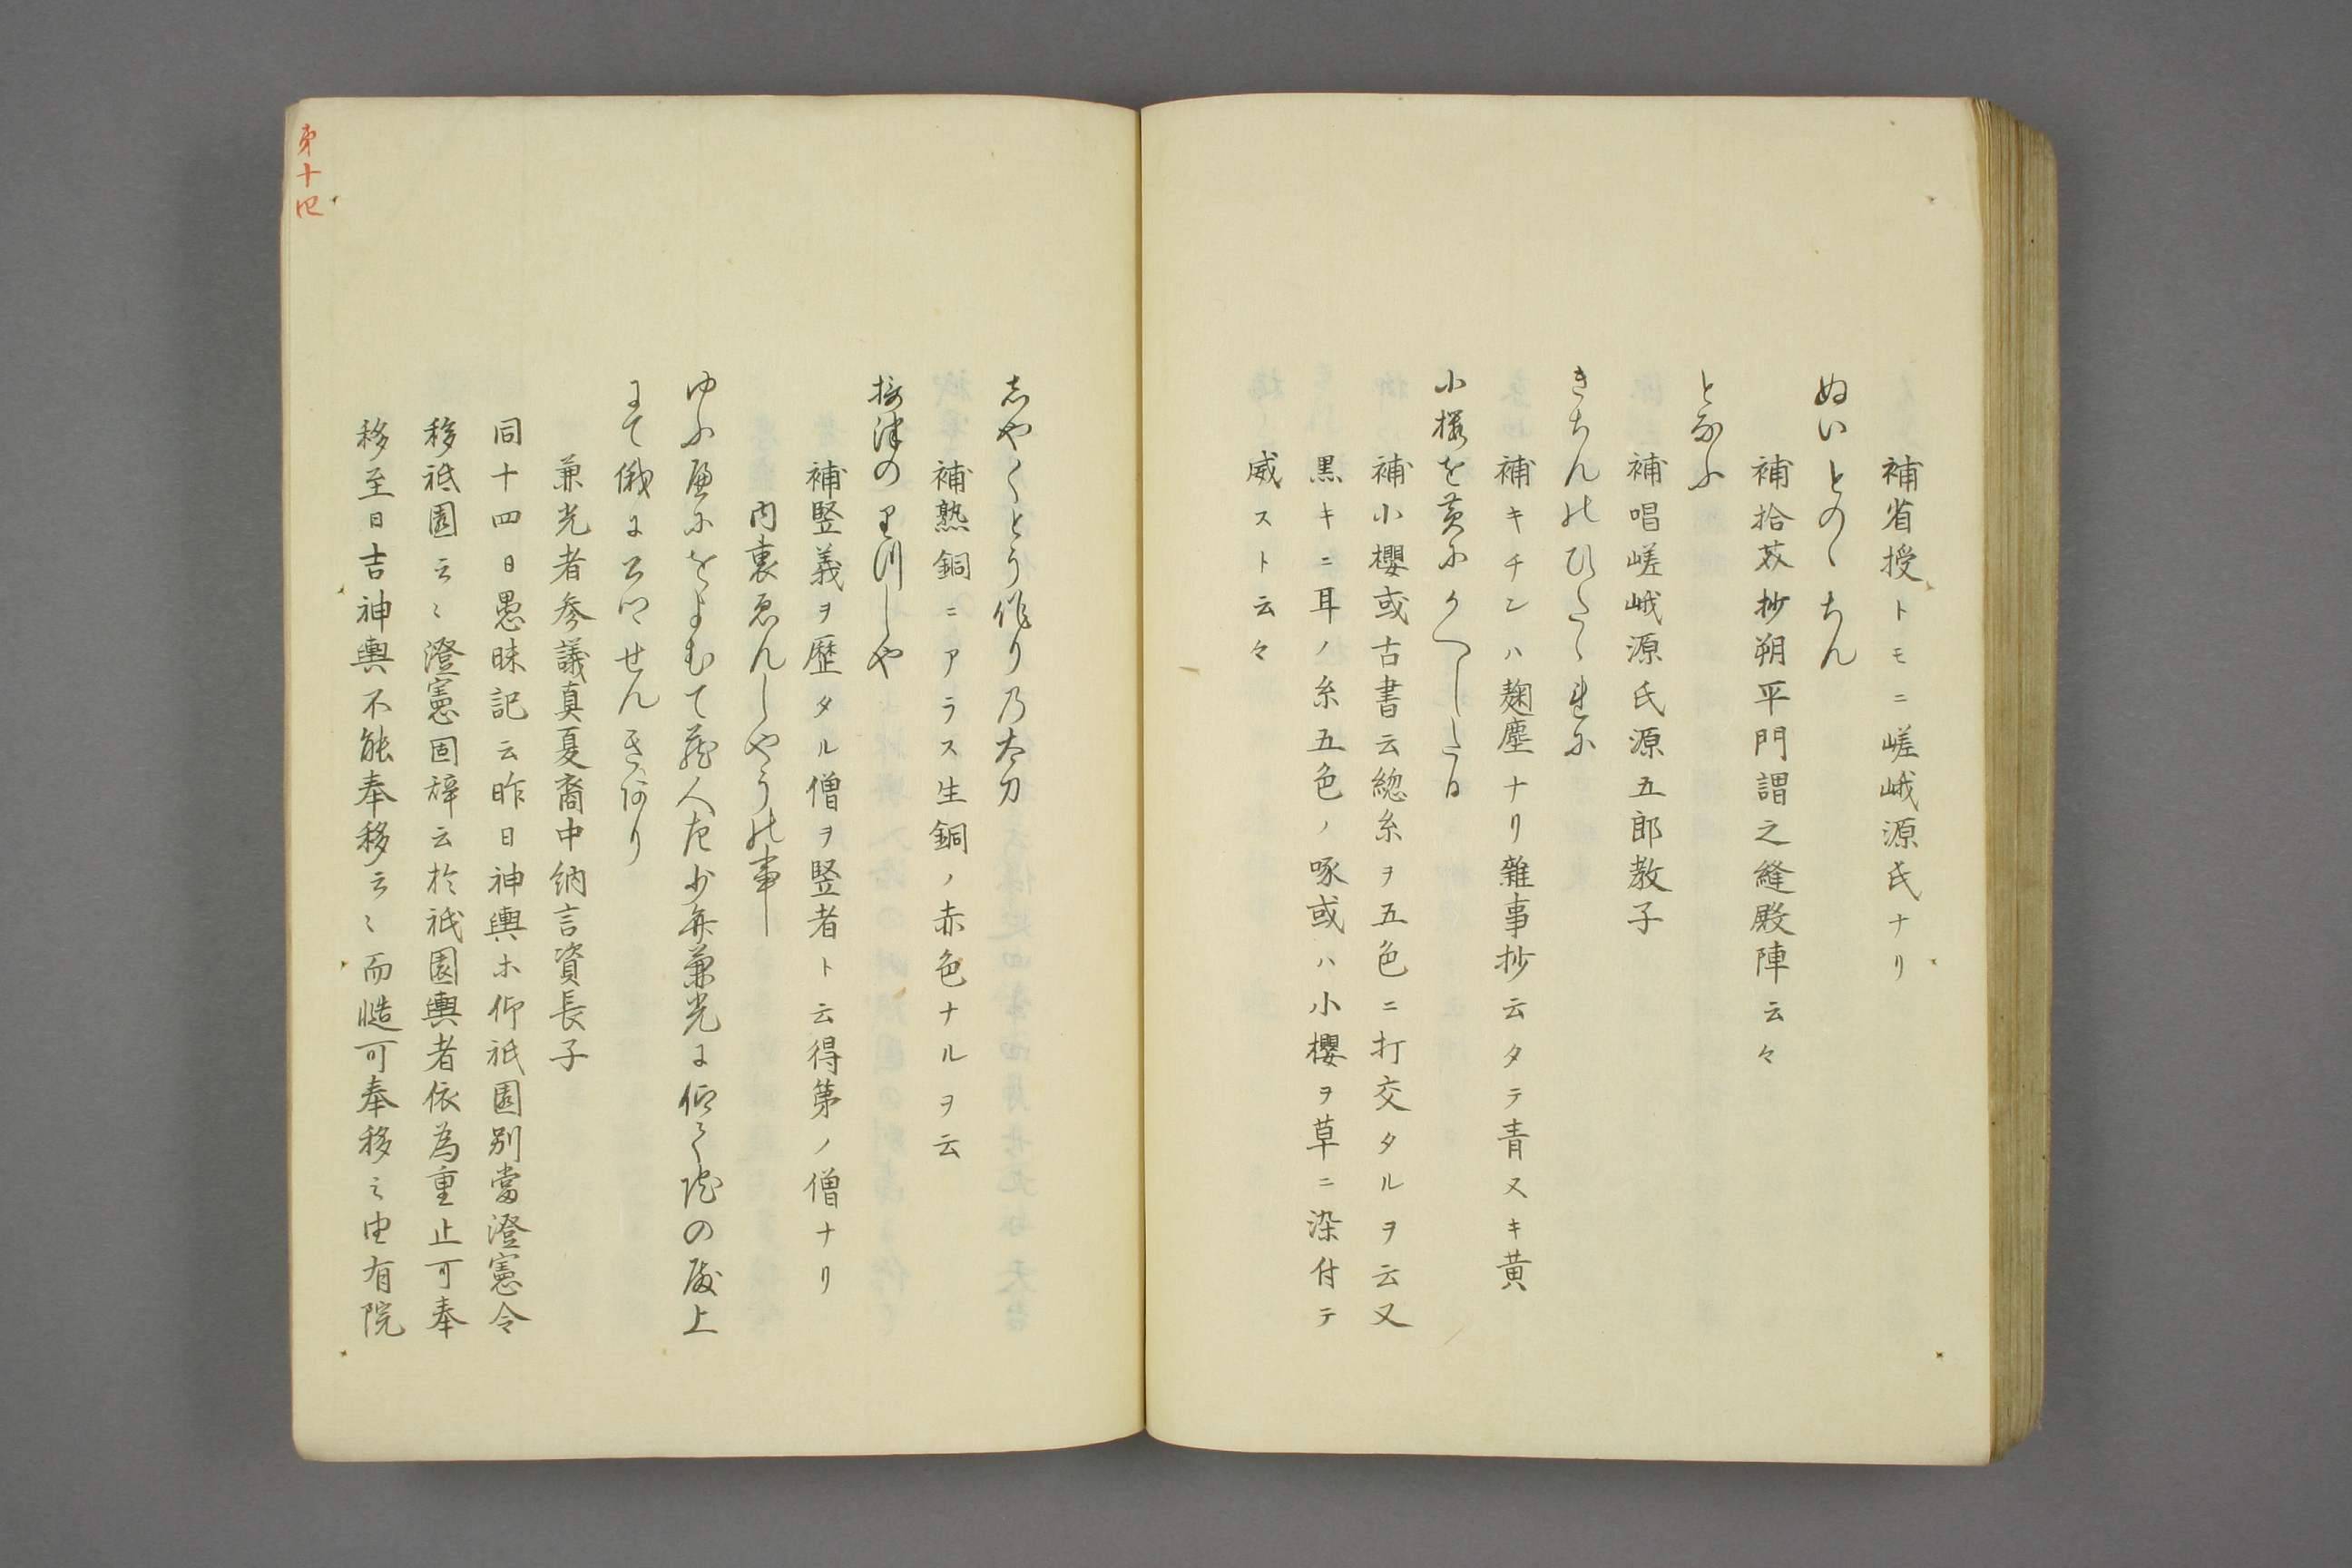 補省授トモニ嵯峨源氏ナリ
ぬいとのゝちん
補拾芥抄朔平門謂之縫殿陣云々
となふ
補唱嵯峨源氏源五郎教子
きちんのひたゝれに
補キチンハ麹塵ナリ雜事抄云タテ青ヌキ黄
小桜を黄にかへしたる
補小櫻或古書云総糸ヲ五色ニ打交タルヲ云又
黒キニ耳ノ糸五色ノ啄或ハ小櫻ヲ草ニ染付テ
威スト云々
志やくとう作り乃太刀
補熟銅ニアラス生銅ノ赤色ナルヲ云
摂津のりつしや
補竪義ヲ歴タル僧ヲ竪者ト云得第ノ僧ナリ
内裏ゑんしやうの事
ゆふへにをよむて蔵人左少弁兼光に仰て院の殿上
にて俄に公卿せんきあり
兼光者参議真夏裔中納言資長子
同十四日愚昧記云昨日神輿ホ仰祇園別當澄憲令
移祇園云々澄憲固辞云於祇園輿者依為重止可奉
移至日吉神輿不能奉移云々而慥可奉移之由有院
第十四